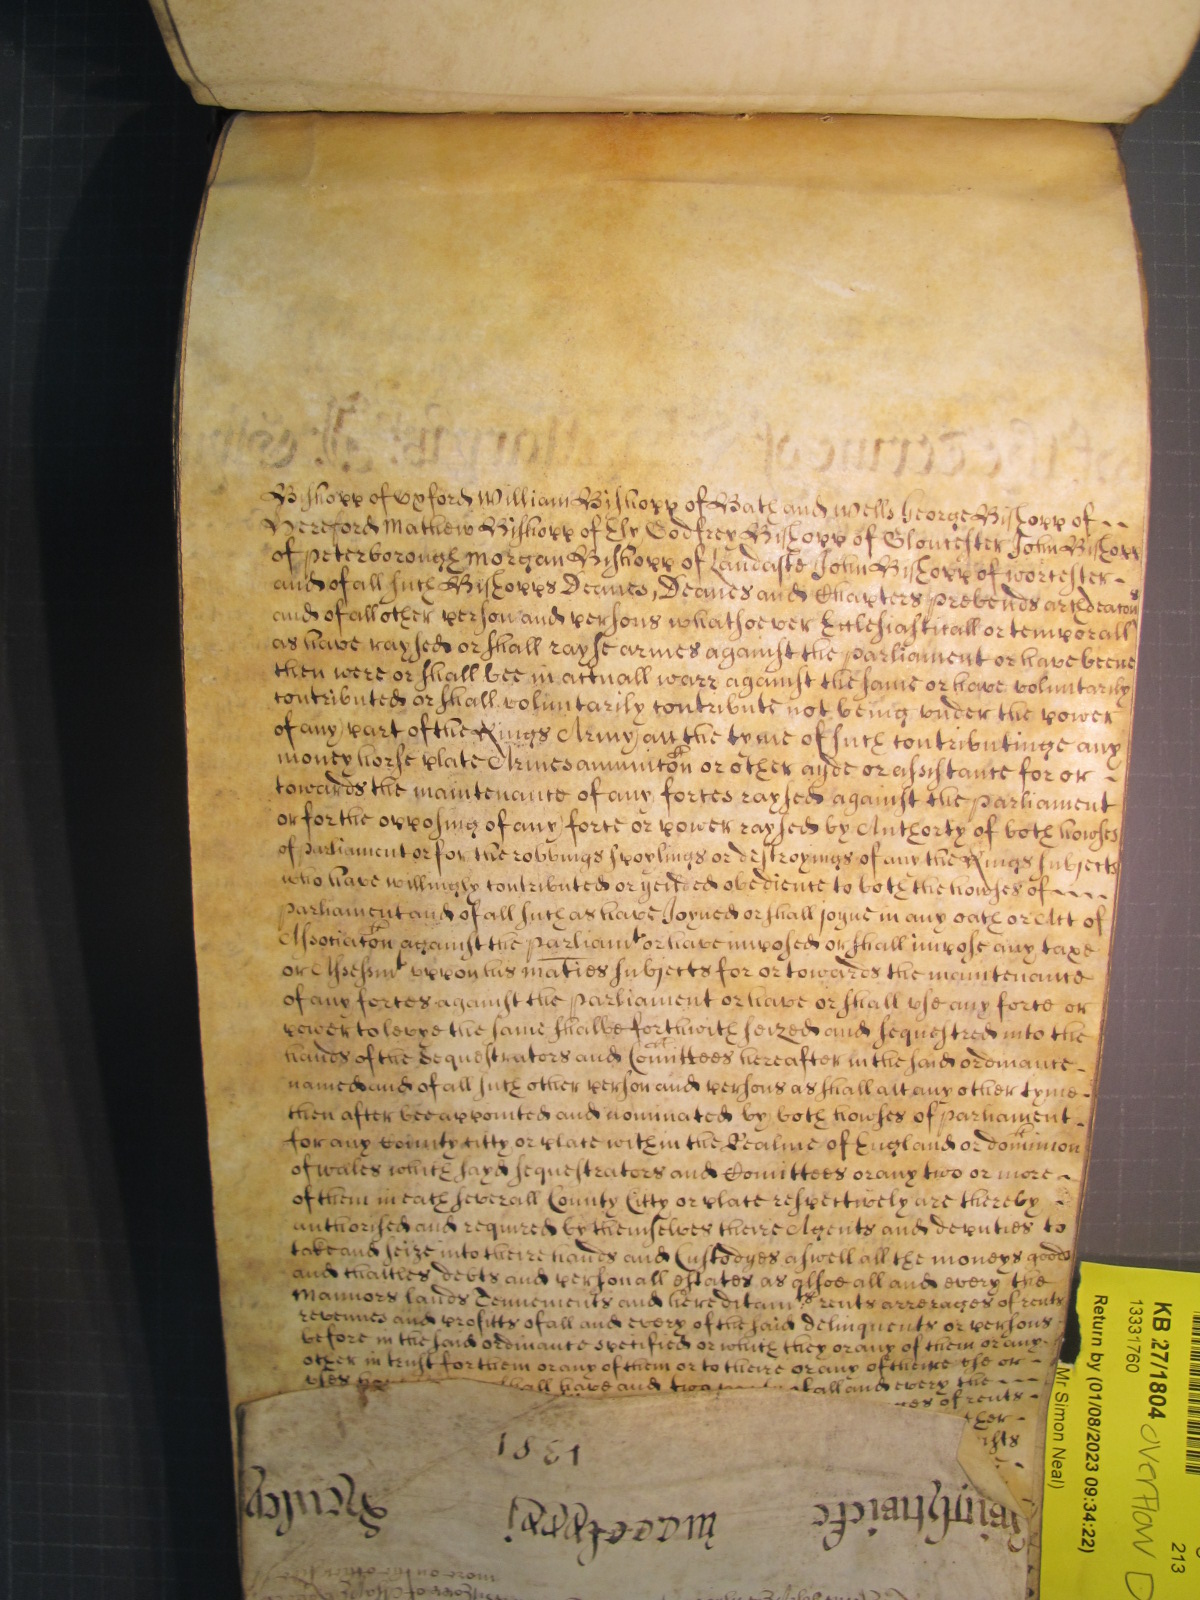 Bishopp of Oxford William Bishopp of Bath and Wells George Bishopp of
Hereford Mathew Bishopp of Ely Godfrey Bishopp of Gloucester John Bishopp
of Peterborough Morgan Bishopp of Landaffe John Bishopp of worcester
and of all such Bishopps Deanes, Deanes and Chapters prebends archdeacons
and of all other person and persons whatsoever Ecclesiasticall or temporall
as have raysed or shall rayse armes against the parliament or have beene
then were or shall bee in actuall warr against the same or have voluntarily
contributed or shall voluntarily contribute not being vnder the power
of any part of the Kings Army att the tyme of such contributinge any
money horse plate Armes amuniton or other ayde or assistance for or
towards the maintenance of any forces raysed against the parliament
or for the opposing of any force or power raysed by Authorty of both howses
of parliament or for the robbings spoylings or destroyings of any the Kings subjects
who have willingly contributed or yeilded obedience to both the howses of
parliament and of all such as have Joyned or shall joyne in any oath or Act of
Assotiaton against the parliamt or have imposed or shall impose any taxe
or Assessmt vppon his maties subjects for or towards the maintenance
of any forces against the parliament or have or shall vse any force or
power to levye the same shalbe forthwith seized and sequestred into the
hands of the Sequestrators and Comittees hereafter in the said ordinance
named and of all such other person and persons as shall att any other tyme
then after bee appointed and nominated by both howses of parliament
for any County citty or place within the Realme of England or dominion
of wales which sayd sequestrators and Comittees or any two or more
of them in each severall County Citty or place respectively are thereby
authorised and required by themselves theire Agents and deputies to
take and seize into theire hands and Custodyes aswell all the moneys goods
and chattles, debts and personall estates as alsoe all and every the
Mannors lands Tennements and hereditamts rents arrerages of rents
revenues and profitts of all and every of the said delinquents or persons
before in the said ordinance specified or which they or any of them or any
other in trust for them or any of them or to theire or any of theire vse or
vses shall have and all and every the
of rents
1351
Henley
KB 27/1804
13331760
Return by (01/08/2023 09:34:22)
Mr Simon Neal)
OVERFLOW D
213